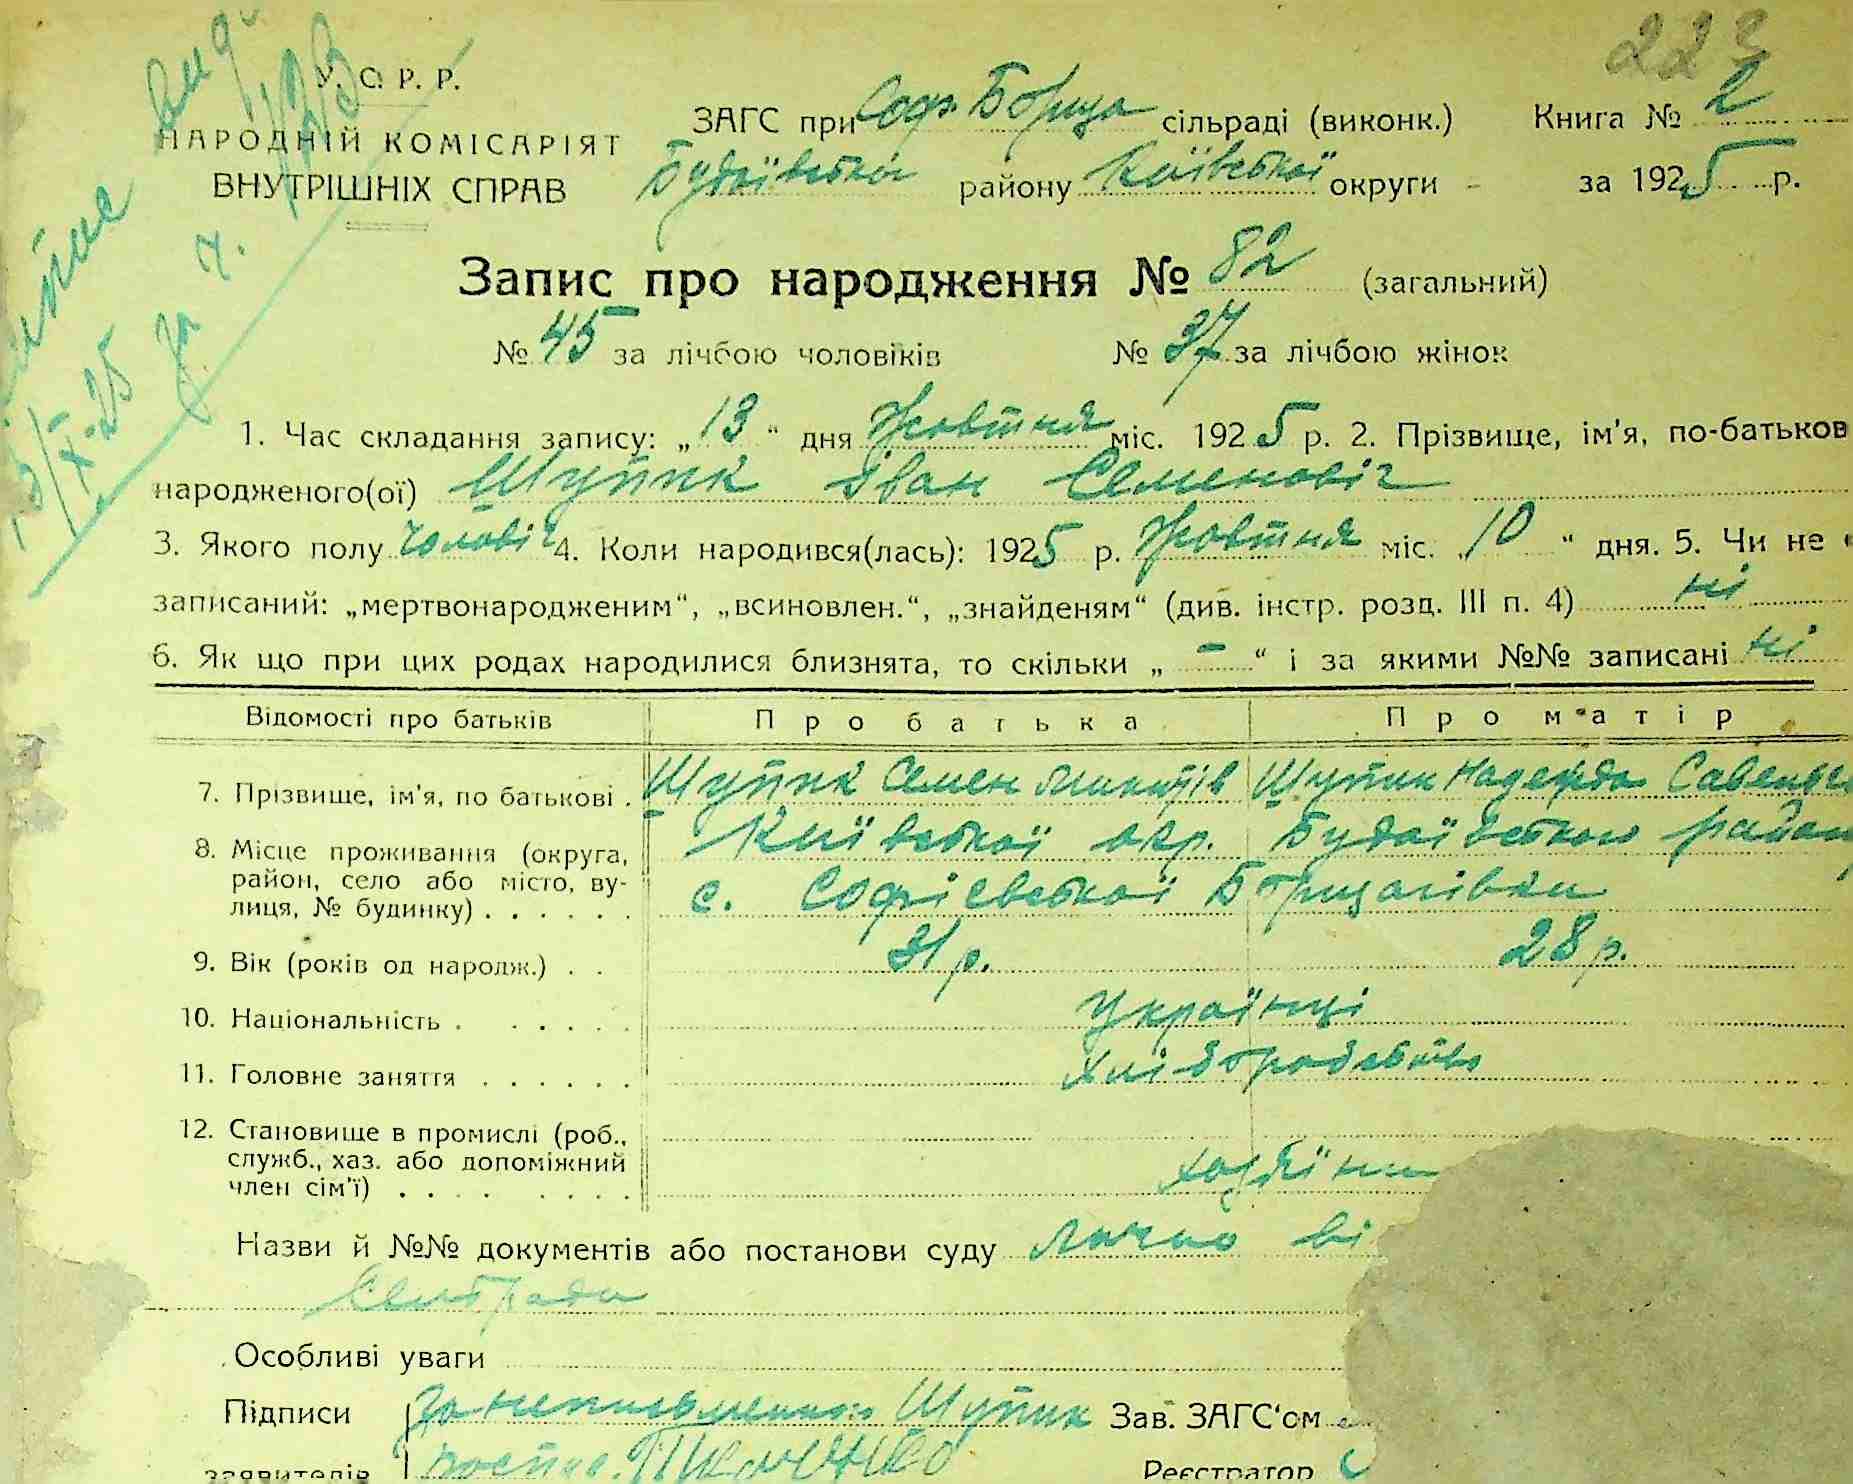 223
У. С. Р. Р.
НАРОДНІЙ КОМІСАРІЯТ
ВНУТРІШНІХ СПРАВ
ЗАГС при Соф. Борща сільраді (виконк.) Книга № 2
Будаївської району Київської округи за 1925 р.
Запис про народження № 82 (загальний)
№ 45 за лічбою чоловіків № 37 за лічбою жінок
1. Час складання запису: „13“ дня Жовтня міс. 1925 р. 2. Прізвище, ім'я, по-батьков
народженого(ої) Шупик Іван Семеновіч
3. Якого полу чоловіч 4. Коли народився(лась): 1925 р. Жовтня міс. „10“ дня. 5. Чи не
записаний: „мертвонародженим“, „всиновлен.“, „знайденям“ (див. інстр. розд. III п. 4) ні
6. Як що при цих родах народилися близнята, то скільки „ – “ і за якими №№ записані ні
Відомості про батьків Про батька Про матір
7. Прізвище, ім'я, по батькові . Шупик Семен Микитів Шупик Надежда
8. Місце проживання (округа, Київської окр. Будаївского району
район, село або місто, ву- с. Софієвської Борщагівки
лиця, № будинку) . . . . . .
9. Вік (років од народж.) . . 31 р. 28 р.
10. Національність . . . . . . Українці
11. Головне заняття . . . . . . Хліборобство
12. Становище в промислі (роб.,
служб., хаз. або допоміжний
член сім'ї) . . . . . . . . хазяїни
Назви й №№ документів або постанови суду лично ві
Сельради
Особливі уваги
Підписи За неписьменного Шупик Зав. ЗАГС'ом
заявителів Реєстратор